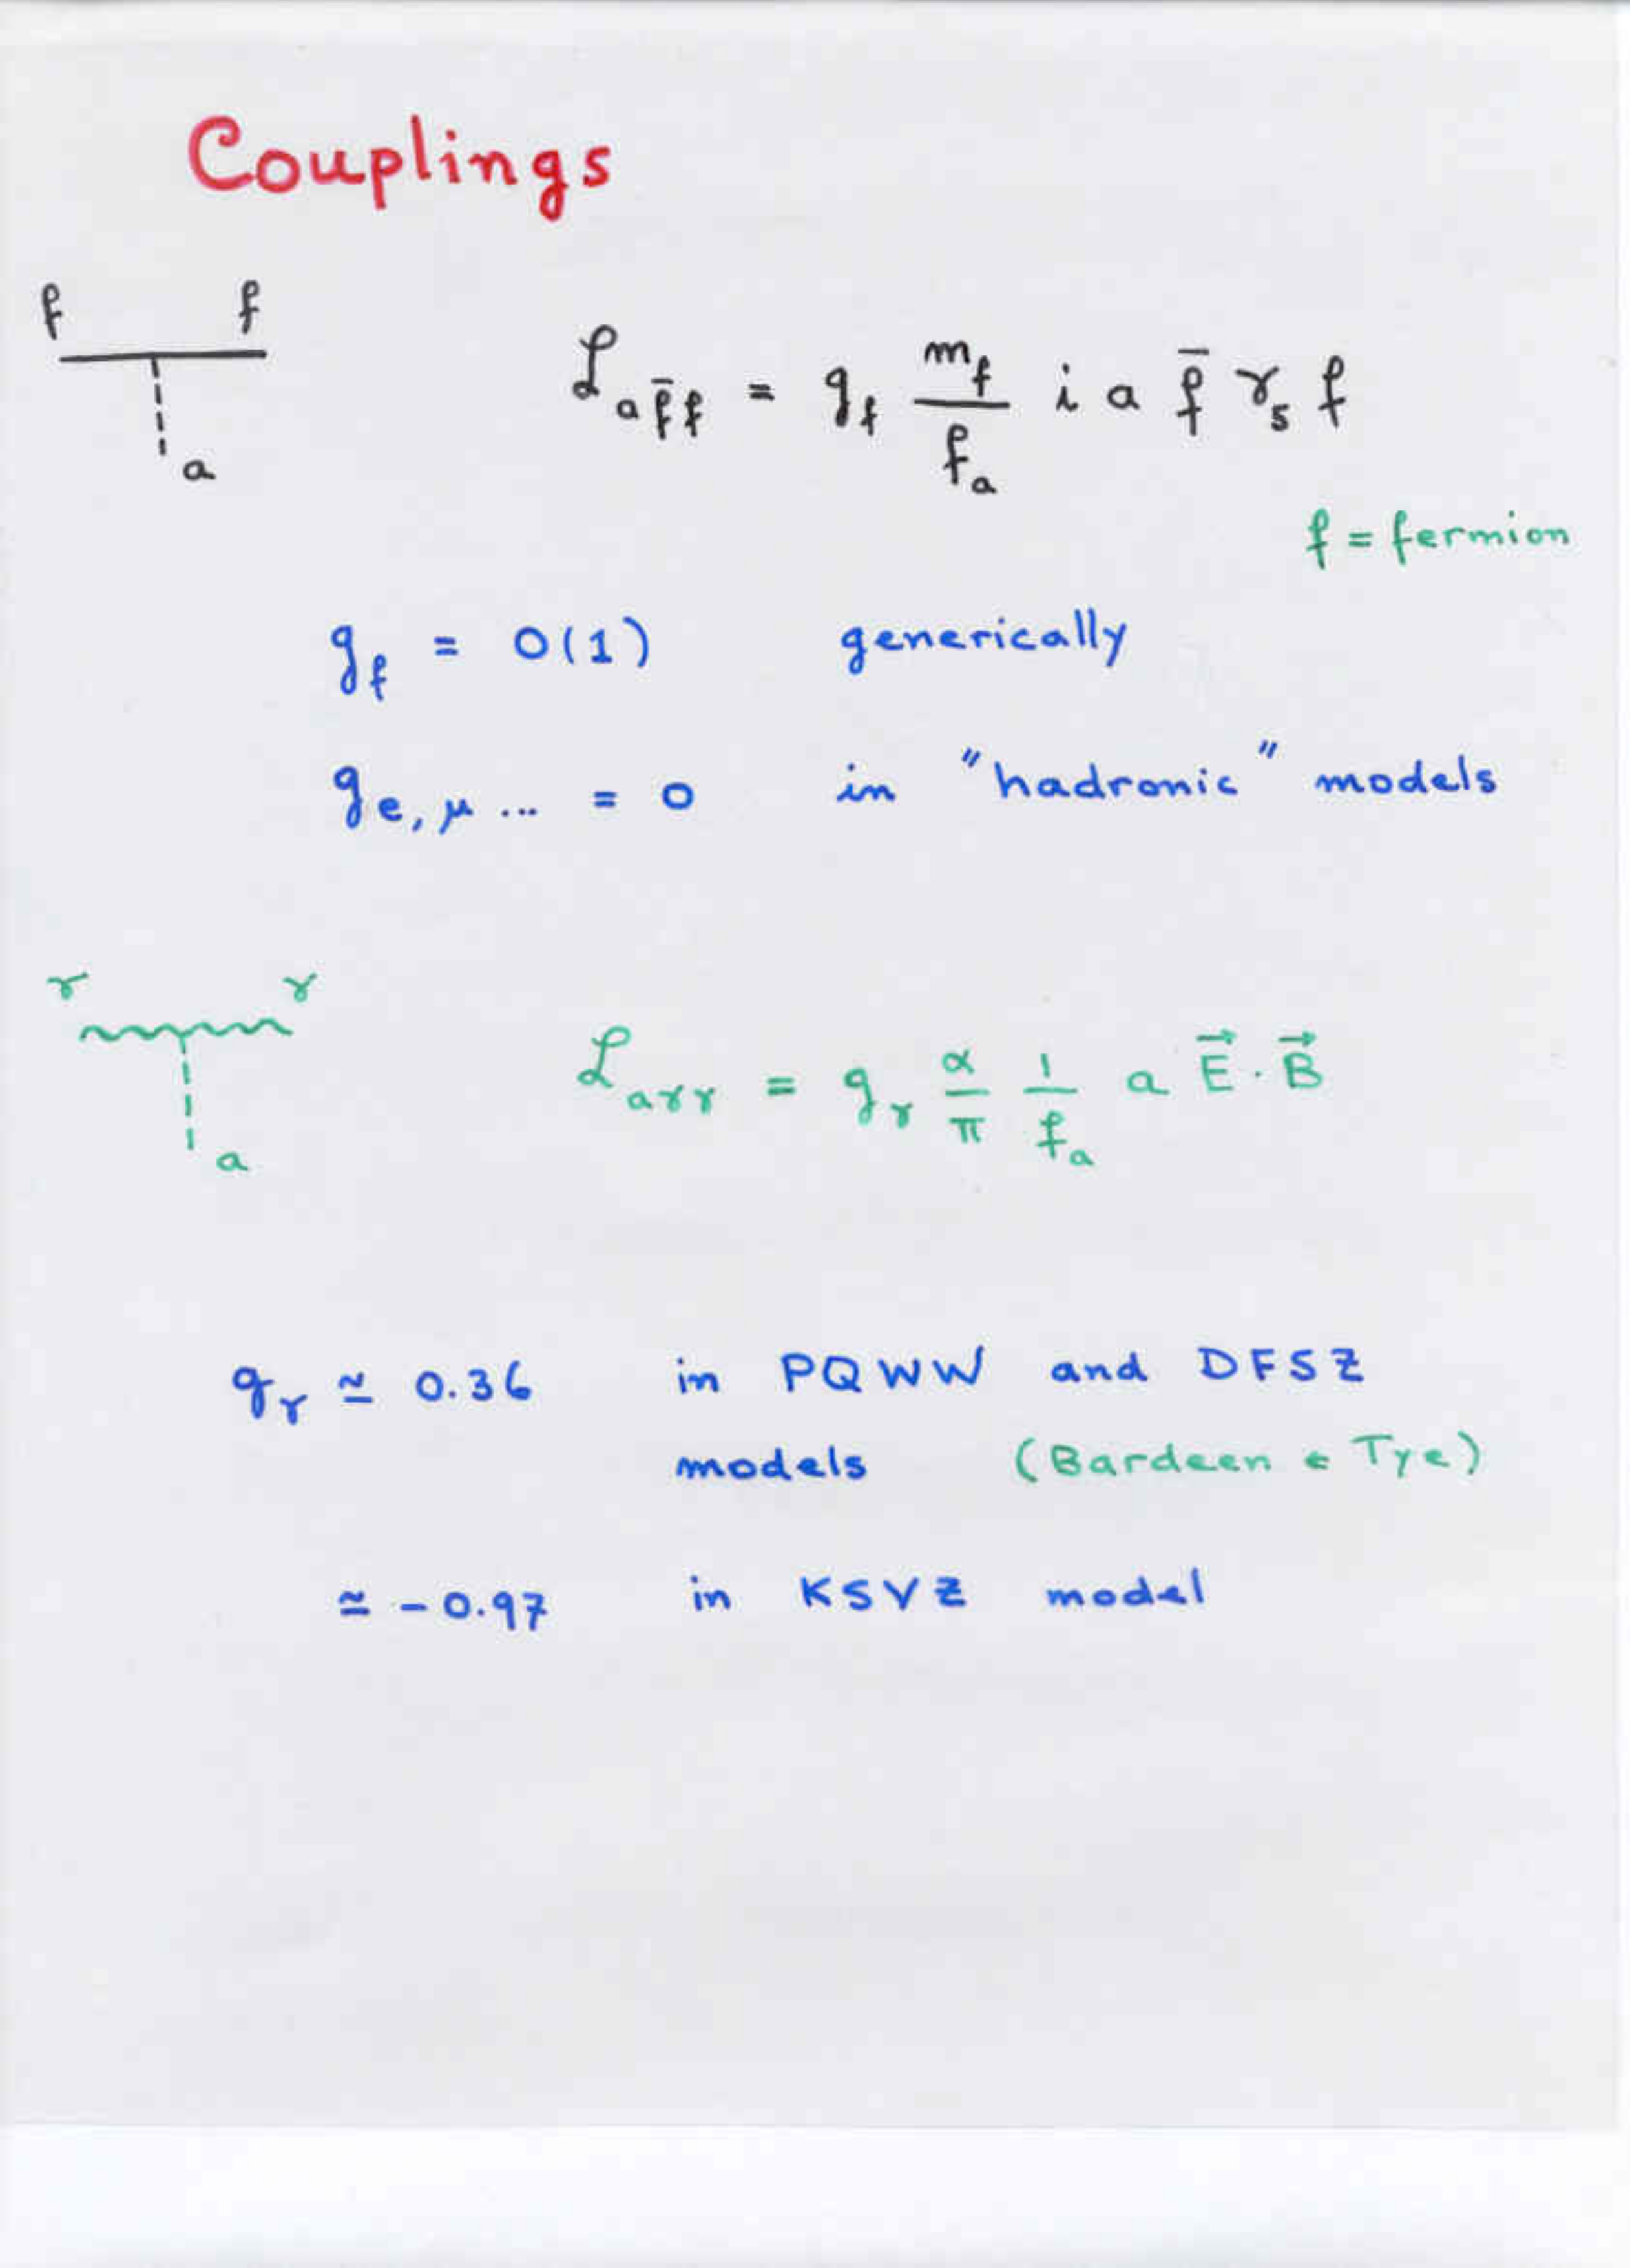 Couplings
f f
a
ℒ_{a f̄ f} = g_f \frac{m_f}{f_a} i a f̄ γ_5 f
f = fermion
g_f = O(1) generically
g_{e, μ ...} = 0 in "hadronic" models
γ γ
a
ℒ_{aγγ} = g_γ \frac{α}{π} \frac{1}{f_a} a \vec{E} · \vec{B}
g_γ ≃ 0.36 in PQWW and DFSZ
models (Bardeen & Tye)
≃ - 0.97 in KSVZ model